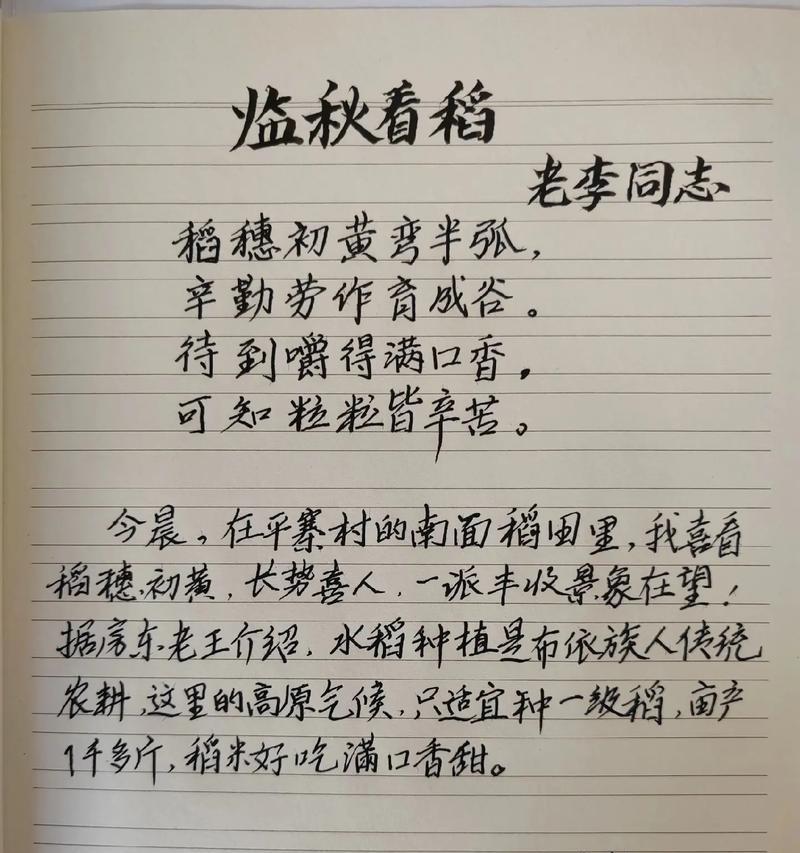 监秋看稻
老李同志
稻穗初黄弯半弧,
辛勤劳作育成谷。
待到嚼得满口香,
可知粒粒皆辛苦。
今晨,在平寨村的南面稻田里,我喜看
稻穗初黄,长势喜人,一派丰收景象在望!
据房东老王介绍,水稻种植是布依族人传统
农耕,这里的高原气候,只适宜种一级稻,亩产
1千多斤,稻米好吃满口香甜。